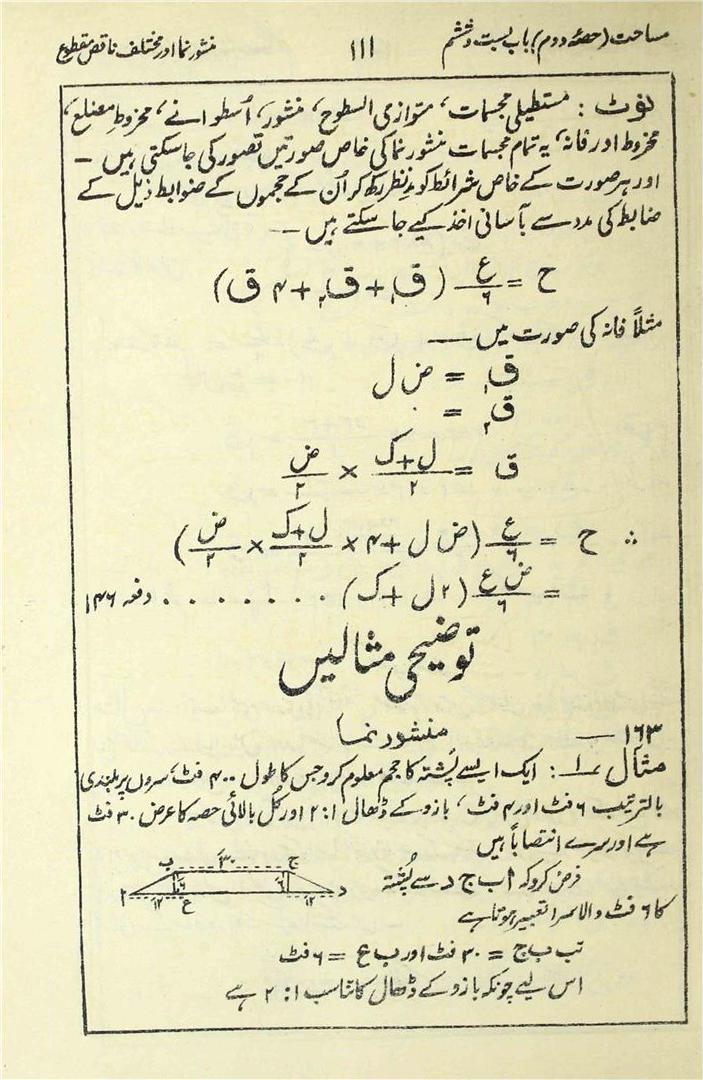 مساحت (حصۂ دوم) باب بست و ششم ۱۱۱ منشور نما اور مختلف ناقص مقطوع
نوٹ : مستطیلی مجسمات، متوازی السطوح، منشور، اُسطوانے، مخروطِ مضلع،
مخروط اور فانہ، یہ تمام مجسمات منشور نما کی خاص صورتیں تصور کی جاسکتی ہیں ـــ
اور ہر صورت کے خاص شرائط کو مدِ نظر رکھ کر اُن کے حجموں کے ضوابط ذیل کے
ضابط کی مدد سے بآسانی اخذ کیے جا سکتے ہیں ـــ
ح = ع/۶ (ق۱ + ق۲ + ۴ ق)
مثلاً فانہ کی صورت میں ـــ
ق۱ = ض ل
ق۲ = ۰
ق = (ل + ک)/۲ × ض/۲
∴ ح = ع/۶ (ض ل + ۴ × (ل + ک)/۲ × ض/۲)
= ض ع/۶ (۲ ل + ک) . . . . . . . . دفعہ ۱۴۶
توضیحی مثالیں
۱۶۳ ـــ منشور نما
مثال ۱ : ایک ایسے پُشتہ کا حجم معلوم کرو جس کا طول ۴۰۰ فٹ، سروں پر بلندی
بالترتیب ۶ فٹ اور ۴ فٹ، بازو کے ڈھال ۱ : ۲ اور کُل بالائی حصہ کا عرض ۳۰ فٹ
ہے اور سرے انتصاباً ہیں
فرض کرو کہ ا ب ج د سے پُشتہ
کا ۶ فٹ والا سرا تعبیر ہوتا ہے
ب ۳۰ ج
۶ ۶
ا ۱۲ ع ۱۲ د
تب ب ج = ۳۰ فٹ اور ب ع = ۶ فٹ
اس لیے چونکہ بازو کے ڈھال کا تناسب ۱ : ۲ ہے